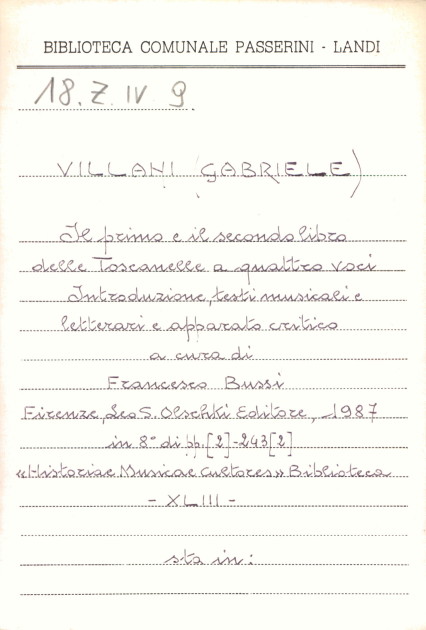 BIBLIOTECA COMUNALE PASSERINI - LANDI
18. Z. IV 9
VILLANI (GABRIELE)
Il primo e il secondo libro
delle Toscanelle a quattro voci
Introduzione, testi musicali e
letterari e apparato critico
a cura di
Francesco Bussi
Firenze, Leo S. Olschki Editore, 1987
in 8° di pp. [2]-243[2]
«Historiae Musicae Cultores» Biblioteca
- XLIII -
sta in: